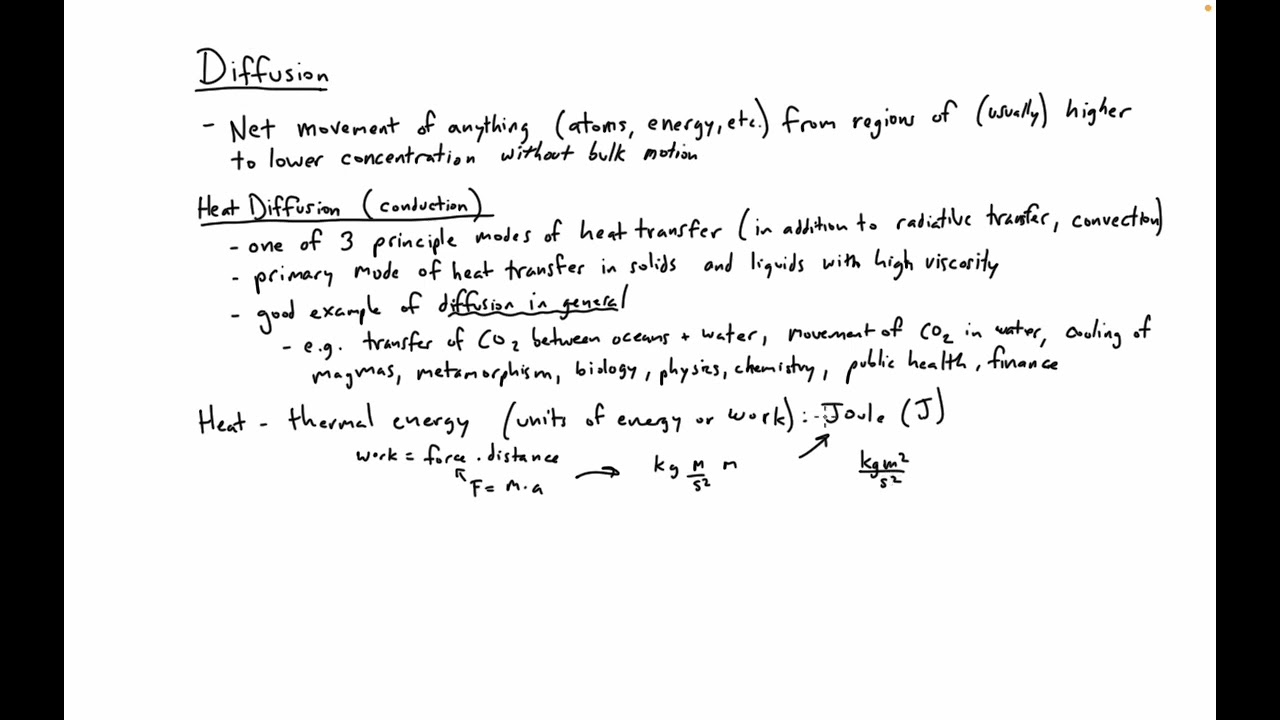 Diffusion
- Net movement of anything (atoms, energy, etc.) from regions of (usually) higher
to lower concentration without bulk motion
Heat Diffusion (conduction)
- one of 3 principle modes of heat transfer (in addition to radiative transfer, convection)
- primary mode of heat transfer in solids and liquids with high viscosity
- good example of diffusion in general
- e.g. transfer of CO2 between oceans + water, movement of CO2 in water, cooling of
magmas, metamorphism, biology, physics, chemistry, public health, finance
Heat - thermal energy (units of energy or work): Joule (J)
work = force · distance
F = m·a → kg m/s² m
kg m²/s²